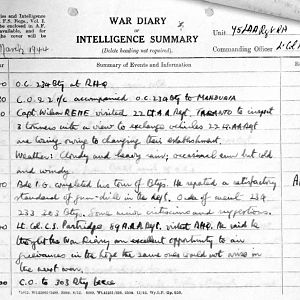 ries and Intelligence
F.S. Regs., Vol. I.
f available, and for
the cover will be
WAR DIARY
or
INTELLIGENCE SUMMARY
(Delete heading not required).
Unit
Commanding Officer
March 1944
Summary of Events and Information
O.C. 234 Bty at R.H.Q
C.O. & 2 i/c accompanied O.C. 234 Bty to MANDURIA
Capt Wilson REME visited 22 LAA Regt, TARANTO to inspect
3 towers with a view to exchange vehicles 22 LAA Regt
are losing owing to changing their establishment.
Weather: Cloudy and heavy rain; occasional sun but cold
and windy.
completed his tour of Btys. He reported a satisfactory
standard of gun-drill in the Regt. Order of merit 234
233 303 Btys. Some minor criticisms and suggestions.
Lt. Col. C.S. Partridge 89 AAA Regt, visited RHQ. He said he
thought the War Diary an excellent opportunity to air
grievances in the hope the same ones would not arise in
the next war.
C.O. to 303 Bty